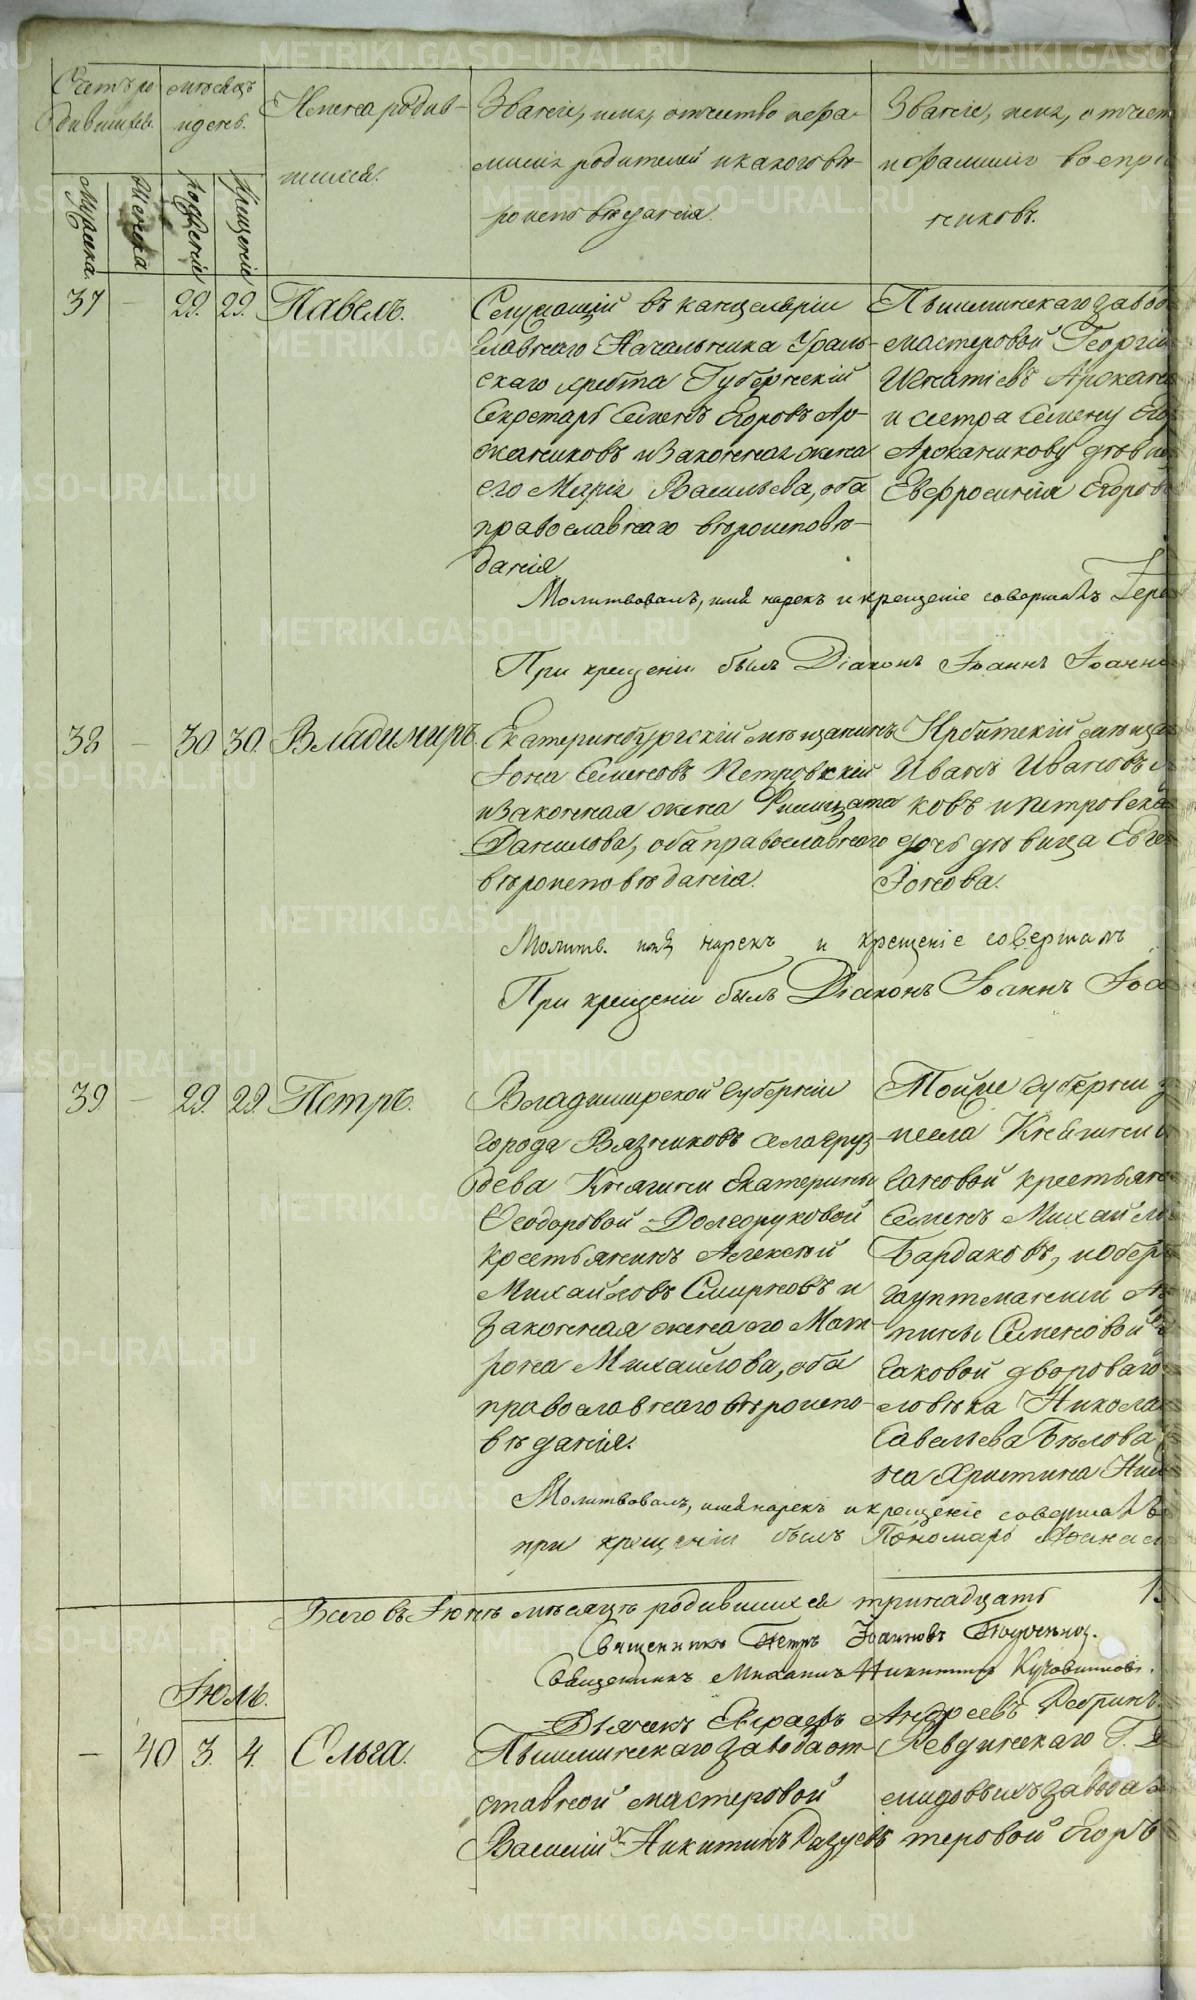 Счетъ ро
дившихся.
Мужеска.
Женска
мѣсяцъ
и день.
рожденіе
крещеніе
Имена родив-
шихся.
Званіе, имя, отчество и фа-
милія родителей и какого вѣ-
роисповѣданія.
Званіе, имя, отчест
и фамилія воспрі
никовъ.
37 — 29. 29. Павелъ.
Служащій въ канцеляріи
Главнаго Начальника Ураль-
скаго хребта Губернскій
Секретарь Семенъ Егоровъ Ар-
жанниковъ и законная жена
его Марія Васильева, оба
православнаго вѣроисповѣ-
данія
Пышминскаго заво
мастеровой Георгій
Игнатіевъ Аржан
и сестра Семену Его
Аржаникову дѣви
Евфросинія Егоров
Молитвовалъ, имя нарекъ и крещеніе совершалъ
При крещеніи былъ Діаконъ Іоаннъ Іоанн
38 — 30 30. Владимиръ.
Екатеринбургскій мѣщанинъ
Іона Семеновъ Петровскій
и законная жена
Данилова, оба православнаго
вѣроисповѣданія.
Ирбитскій мѣща
Иванъ Ивановъ
ковъ и Петровска
дочь дѣвица Евге
Іонова.
Молитв. имя нарекъ и крещеніе совершалъ
При крещеніи былъ Діаконъ Іоаннъ Іоа
39 — 29. 29 Петръ.
Владимирской губерніи
города Вязниковъ села Груз-
дева Княгини Екатерины
Ѳеодоровой Долгоруковой
крестьянинъ Алексѣй
Михайловъ Смирновъ и
законная жена его Мат-
рона Михайлова, оба
православнаго вѣроиспо-
вѣданія.
Тойже губерніи
села Княгини
гановой крестьян
Семенъ Михайло
Бардаковъ, и обер
гауптманши
пины Семеновой
гаковой двороваго
ловѣка Никола
Савельева Бѣлова
на Христина Ни
Молитвовалъ, имя нарекъ и крещеніе совершалъ
при крещеніи былъ Пономарь Аѳанас
Всего въ Іюнѣ мѣсяцѣ родившихся тринадцать 1
Священникъ Петръ Іоанновъ
Священникъ Михаилъ Никитинъ
Дьячекъ Андреевъ
Іюль.
— 40 3. 4. Ольга.
Пышминскаго завода от-
ставной мастеровой
Василій Никитинъ
Ревдинскаго Г. Де
мидовыхъ завода
теровой Егоръ
METRIKI.GASO-URAL.RU